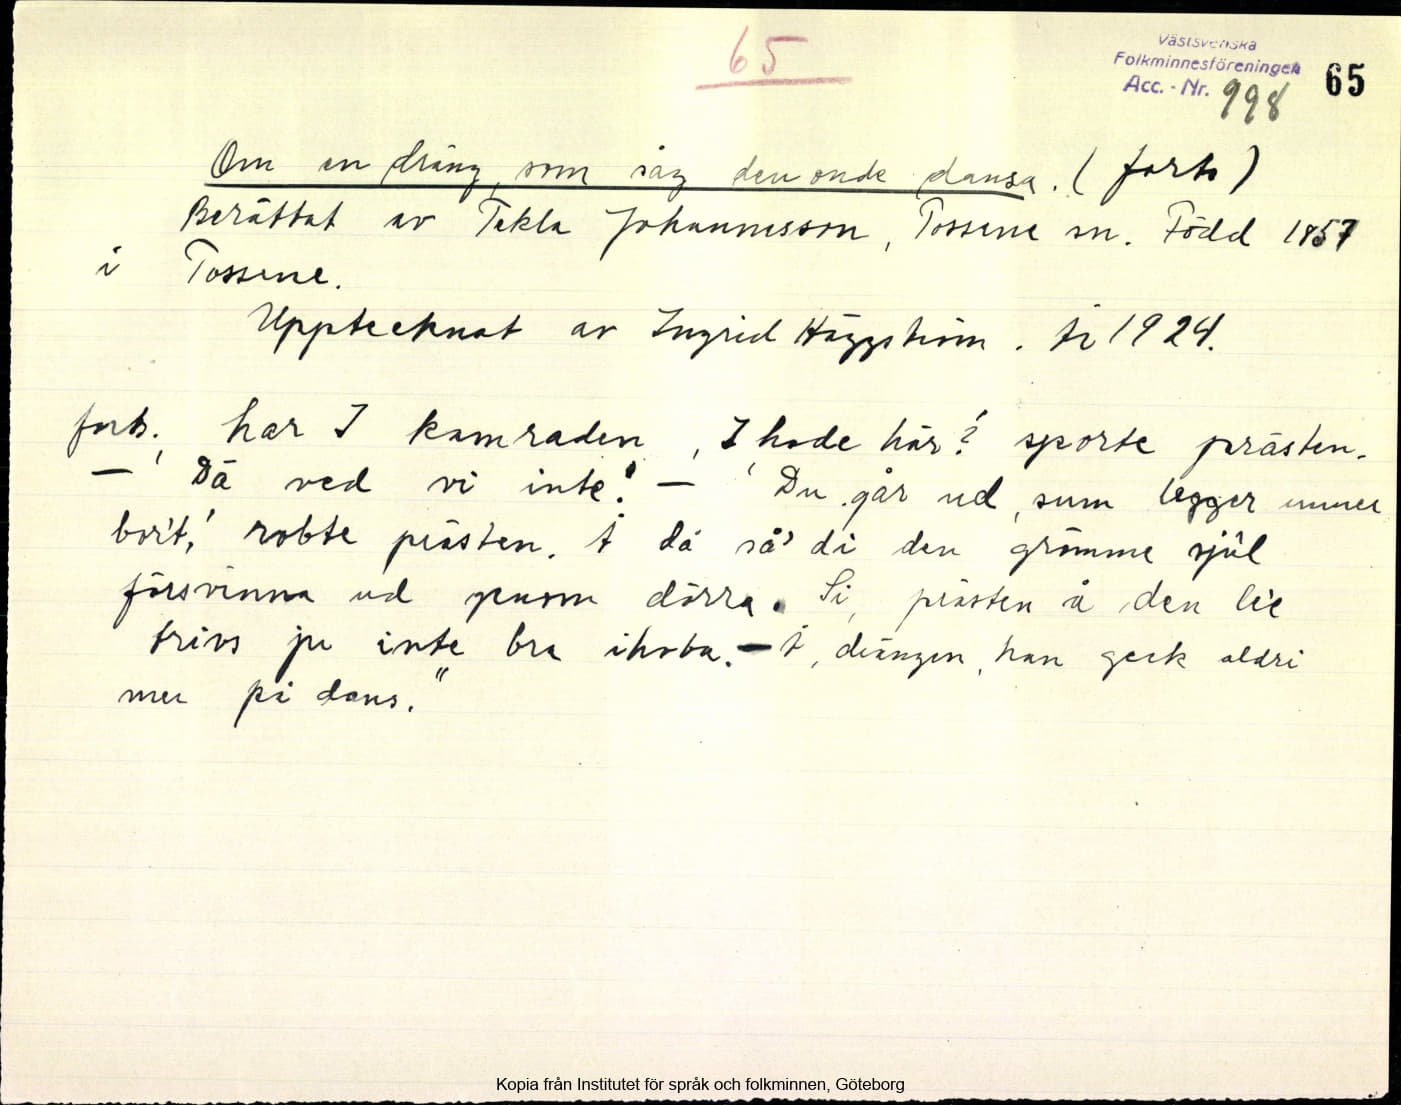 65
Västsvenska
Folkminnesföreningen
Acc. - Nr. 998
65
Om en dräng, som såg den onde dansa. (forts)
Berättat av Tekla Johannesson, Tossene sn. Född 1857
i Tossene.
Upptecknat av Ingrid Häggström. år 1924.
forts. 'har I kamraden, I hade här?' sporte prästen.
— 'Dä ved vi inte!' — 'Du går ud, sum legger
bort,' robte prästen. Å då så' di den grömme sjül
försvinna ud genom dörra. Si, prästen å den lie
trivs ju inte bra ihoba. — Å, drängen, han geck aldri
mer på dans."
Kopia från Institutet för språk och folkminnen, Göteborg